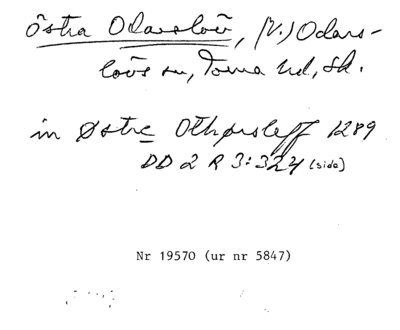 Östra Odarslöv, (V.) Odars-
lövs sn, Torna hd, Sk.
in Østre Othhersleff 1289
DD 2 R 3:324 (sida)
Nr 19570 (ur nr 5847)